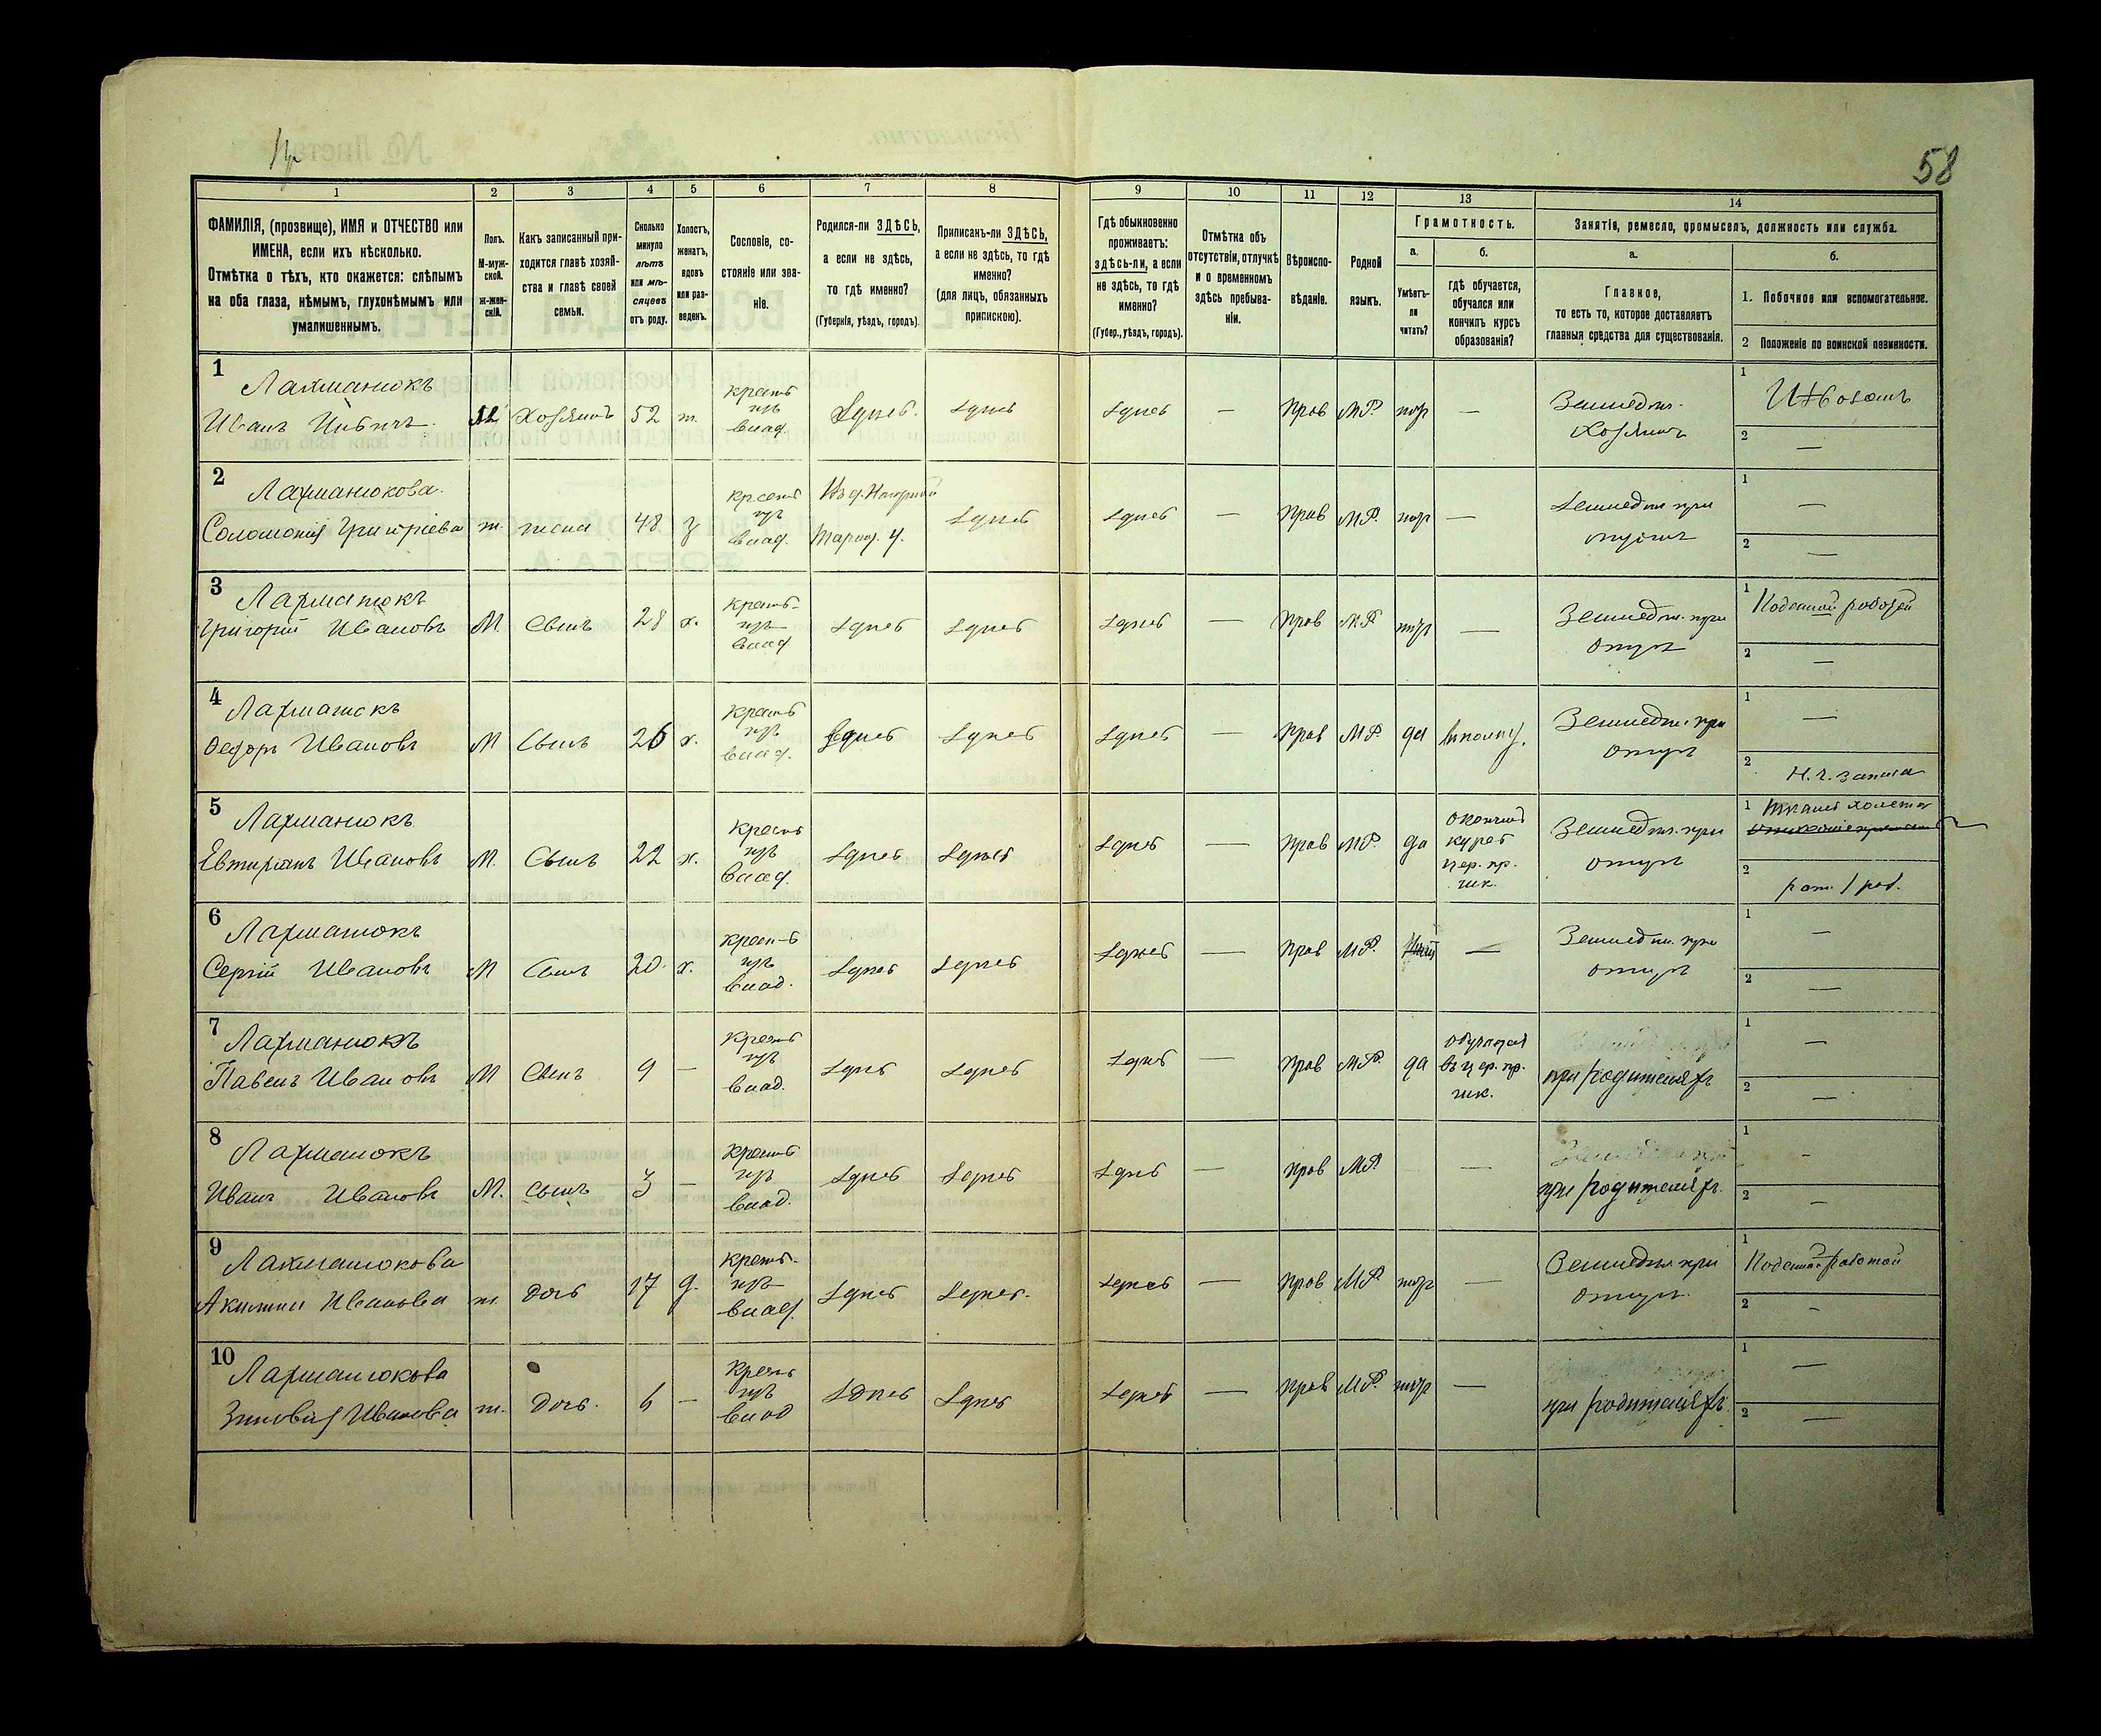 58
1 2 3 4 5 6 7 8 9 10 11 12 13 14
ФАМИЛІЯ, (прозвище), ИМЯ и ОТЧЕСТВО или
ИМЕНА, если ихъ нѣсколько.
Отмѣтка о тѣхъ, кто окажется: слѣпымъ
на оба глаза, нѣмымъ, глухонѣмымъ или
умалишеннымъ.
Полъ.
М-муж-
ской.
Ж-жен-
скій.
Какъ записанный при-
ходится главѣ хозяй-
ства и главѣ своей
семьи.
Сколько
минуло
лѣтъ
или мѣ-
сяцевъ
отъ роду.
Холостъ,
женатъ,
вдовъ
или раз-
веденъ.
Сословіе, со-
стояніе или зва-
ніе.
Родился-ли ЗДѢСЬ,
а если не здѣсь,
то гдѣ именно?
(Губернія, уѣздъ, городъ).
Приписанъ-ли ЗДѢСЬ,
а если не здѣсь, то гдѣ
именно?
(для лицъ, обязанныхъ
припискою).
Гдѣ обыкновенно
проживаетъ:
здѣсь-ли, а если
не здѣсь, то гдѣ
именно?
(Губер., уѣздъ, городъ).
Отмѣтка объ
отсутствіи, отлучкѣ
и о временномъ
здѣсь пребыва-
ніи.
Вѣроиспо-
вѣданіе.
Родной
языкъ.
Грамотность.
а.
Умѣетъ-
ли
читать?
б.
гдѣ обучается,
обучался или
кончилъ курсъ
образованія?
Занятія, ремесло, промыселъ, должность или служба.
а.
Главное,
то есть то, которое доставляетъ
главныя средства для существованія.
б.
1. Побочное или вспомогательное.
2 Положеніе по воинской повинности.
1
Лахманюкъ
Иванъ
Хозяинъ 52 ж. Крест. изъ влад. здѣсь здѣсь
здѣсь — Прав М.Р. — Земледѣл. Хозяинъ
1 Извозъ
2 —
2
Лахманюкова
Соломонія Григоріева ж. жена 48 з Крест. изъ влад. здѣсь
здѣсь — Прав М.Р. — Земледѣл при
1 —
2 —
3
Лахманюкъ
Григорій Ивановъ М. Сынъ 28 х. Крест. изъ влад здѣсь здѣсь
здѣсь — Прав М.Р. — Земледѣл. при отцѣ
1
2 —
4
Лахманюкъ
Ѳедоръ Ивановъ М Сынъ 26 х. Крест. изъ влад. здѣсь здѣсь
здѣсь — Прав М.Р. да Земледѣл. при отцѣ
1 —
2 Н. ч. запаса
5
Лахманюкъ
Евтихій Ивановъ М. Сынъ 22 х. Крест. изъ влад. здѣсь здѣсь
здѣсь — Прав М.Р. да окончилъ курсъ цер. пр. шк. Земледѣл. при отцѣ
1
2
6
Лахманюкъ
Сергій Ивановъ М Сынъ 20 х. Крест. изъ влад. здѣсь здѣсь
здѣсь — Прав М.Р. — Земледѣл. при отцѣ
1 —
2 —
7
Лахманюкъ
Павелъ Ивановъ М Сынъ 9 — Крест. изъ влад. здѣсь здѣсь
здѣсь — Прав М.Р. да обучается въ цер. пр. шк. при родителяхъ
1 —
2 —
8
Лахманюкъ
Иванъ Ивановъ М. Сынъ 3 — Крест. изъ влад. здѣсь здѣсь
здѣсь — Прав М.Р. — при родителяхъ
1 —
2 —
9
Лахманюкова
Акилина Иванова ж. Дочь 17 д. Крест. изъ влад. здѣсь здѣсь
здѣсь — Прав М.Р. — Земледѣл при отцѣ
1
2 —
10
Лахманюкова
Зиновія Иванова ж. Дочь. 6 — Крест. изъ влад здѣсь здѣсь
здѣсь — Прав М.Р. — при родителяхъ
1 —
2 —